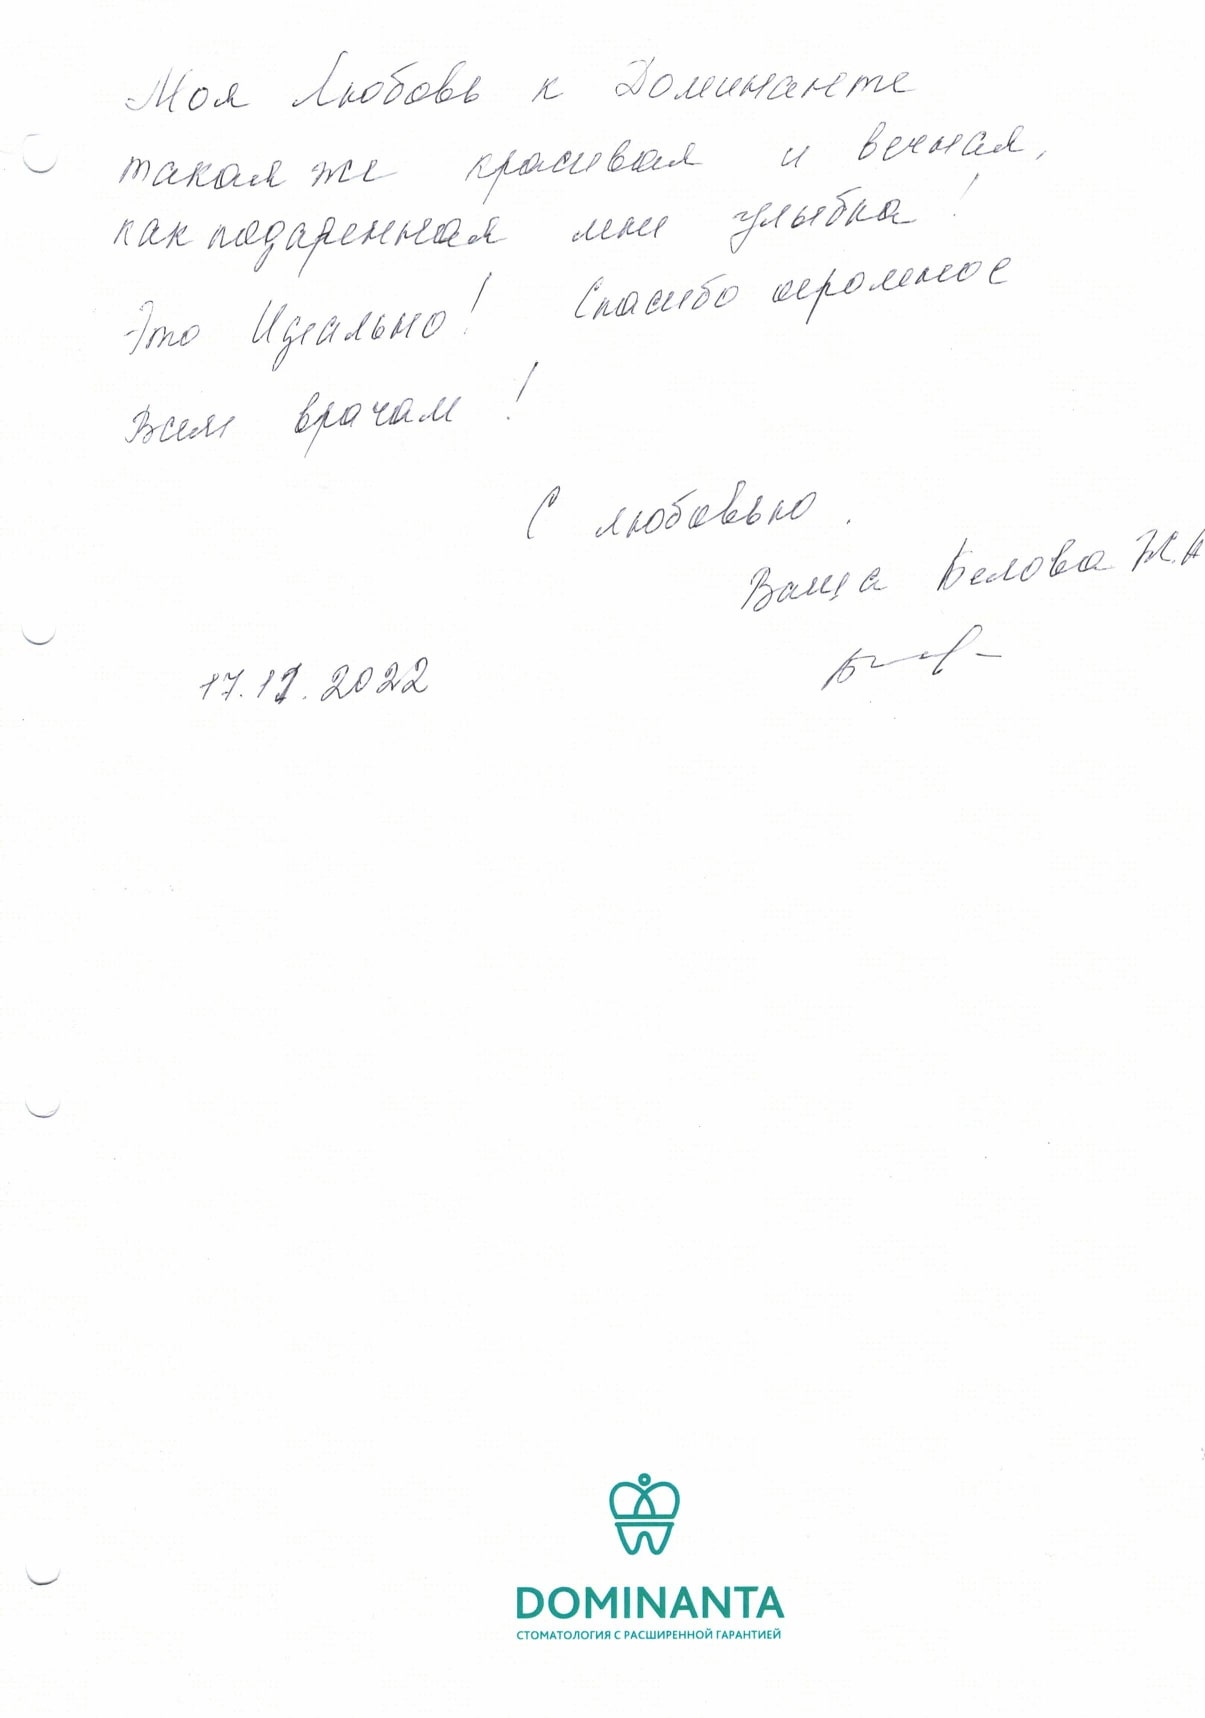 Моя Любовь к Доминанте
такая же красивая и вечная,
как подаренная мне улыбка!
Это Идеально! Спасибо огромное
Всем врачам!
С любовью.
Ваша Белова Ж.А
17.12.2022
DOMINANTA
СТОМАТОЛОГИЯ С РАСШИРЕННОЙ ГАРАНТИЕЙ